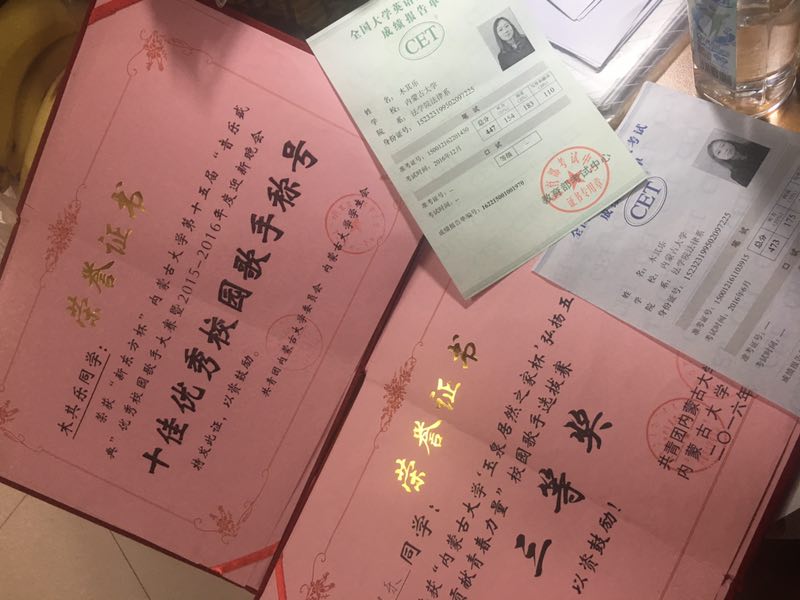 荣誉证书
木其乐同学：
荣获“新东方杯”内蒙古大学第十五届“音乐盛
典”优秀校园歌手大赛暨2015-2016年度迎新晚会
十佳优秀校园歌手称号
特发此证，以资鼓励。
共青团内蒙古大学委员会 内蒙古大学学生会
荣誉证书
乐 同学：
荣获“内蒙古大学‘玉泉居然之家杯 弘扬五
贡献青春力量”校园歌手选拔赛
三等奖
以资鼓励！
共青团内蒙古大
内蒙古大学
二〇一六年
全国大学英语
成绩报告单
CET
姓 名：木其乐
学 校：内蒙古大学
院 系：法学院法律系
身份证号：152323199502097225
笔 试
准考证号：150012102201430
考试时间：2016年12月
总分
447 154 183 110
口 试
等级 --
准考证号：--
考试时间：--
成绩报告单编号：162215001001970
教育部考试中心
证书专用章
考试
CET
姓 名：木其乐
学 校：内蒙古大学
院 系：法学院法律系
身份证号：152323199502097225
笔 试
准考证号：150012161103915
考试时间：2016年6月
总分
473 175
口 试
准考证号：--
考试时间：--